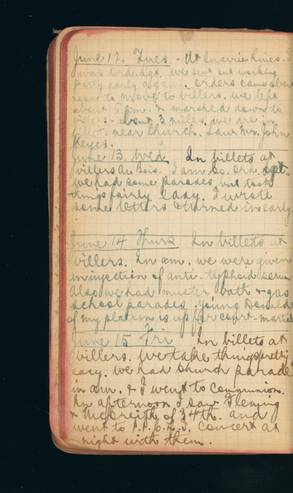 June 12 Tues. - At Quarrie Lines. I
was Orderly. we sent out working
party early again. orders came about
noon to move to Villers. we left
about 5 p.m. & marched down to
- about 3 miles. we are in
billet near church. Saw Mr. John
Keyes.
June 13 Wed. In billets at
Villers Au Bois. I am Co. Ord. Sgt.
we had some parades but took
things fairly easy. I wrote
some letters & turned in early.
June 14 Thurs In billets at
Villers. In a.m. we were given
an injection of anti-typhoid serum
Also we had muster, bath & gas
school parades. Young
of my platoon is up for court-martial
June 15 Fri In billets at
Villers. We take things pretty
easy. we had Church parade
in a.m. & I went to Communion.
In afternoon I saw Fleming
& McCreith of 34th. and
went to P.P.C.L.I. concert at
night with them.